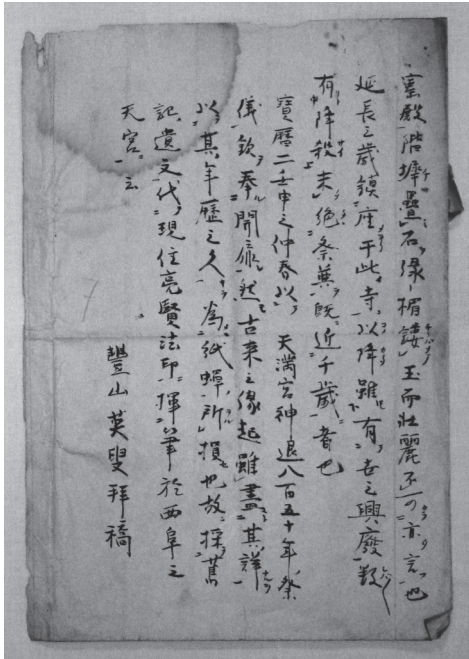 霊殿階墀畳石縁楣鏤玉而壮麗不可亦言也
延長之歳鎮座于此寺以降雖有世之興廃数
有降殺未絶奈葉既近千歳者也
寶暦二壬申之仲春以天満宮神退八百五十年祭
儀欽奉開扉然古来之縁起雖盡其詳
以其年歴之久為紙蟬所損也故探舊
記遺文代現住亮賢法印揮筆於西阜之
天宮云
豐山英叟拜稿